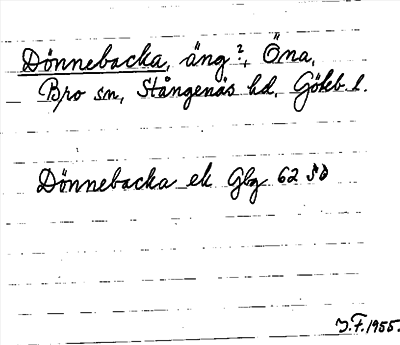 Dönnebacka, äng?, Öna,
Bro sn, Stångenäs hd, Göteb l.
Dönnebacka ek Gbg 62 50
J.F. 1955.